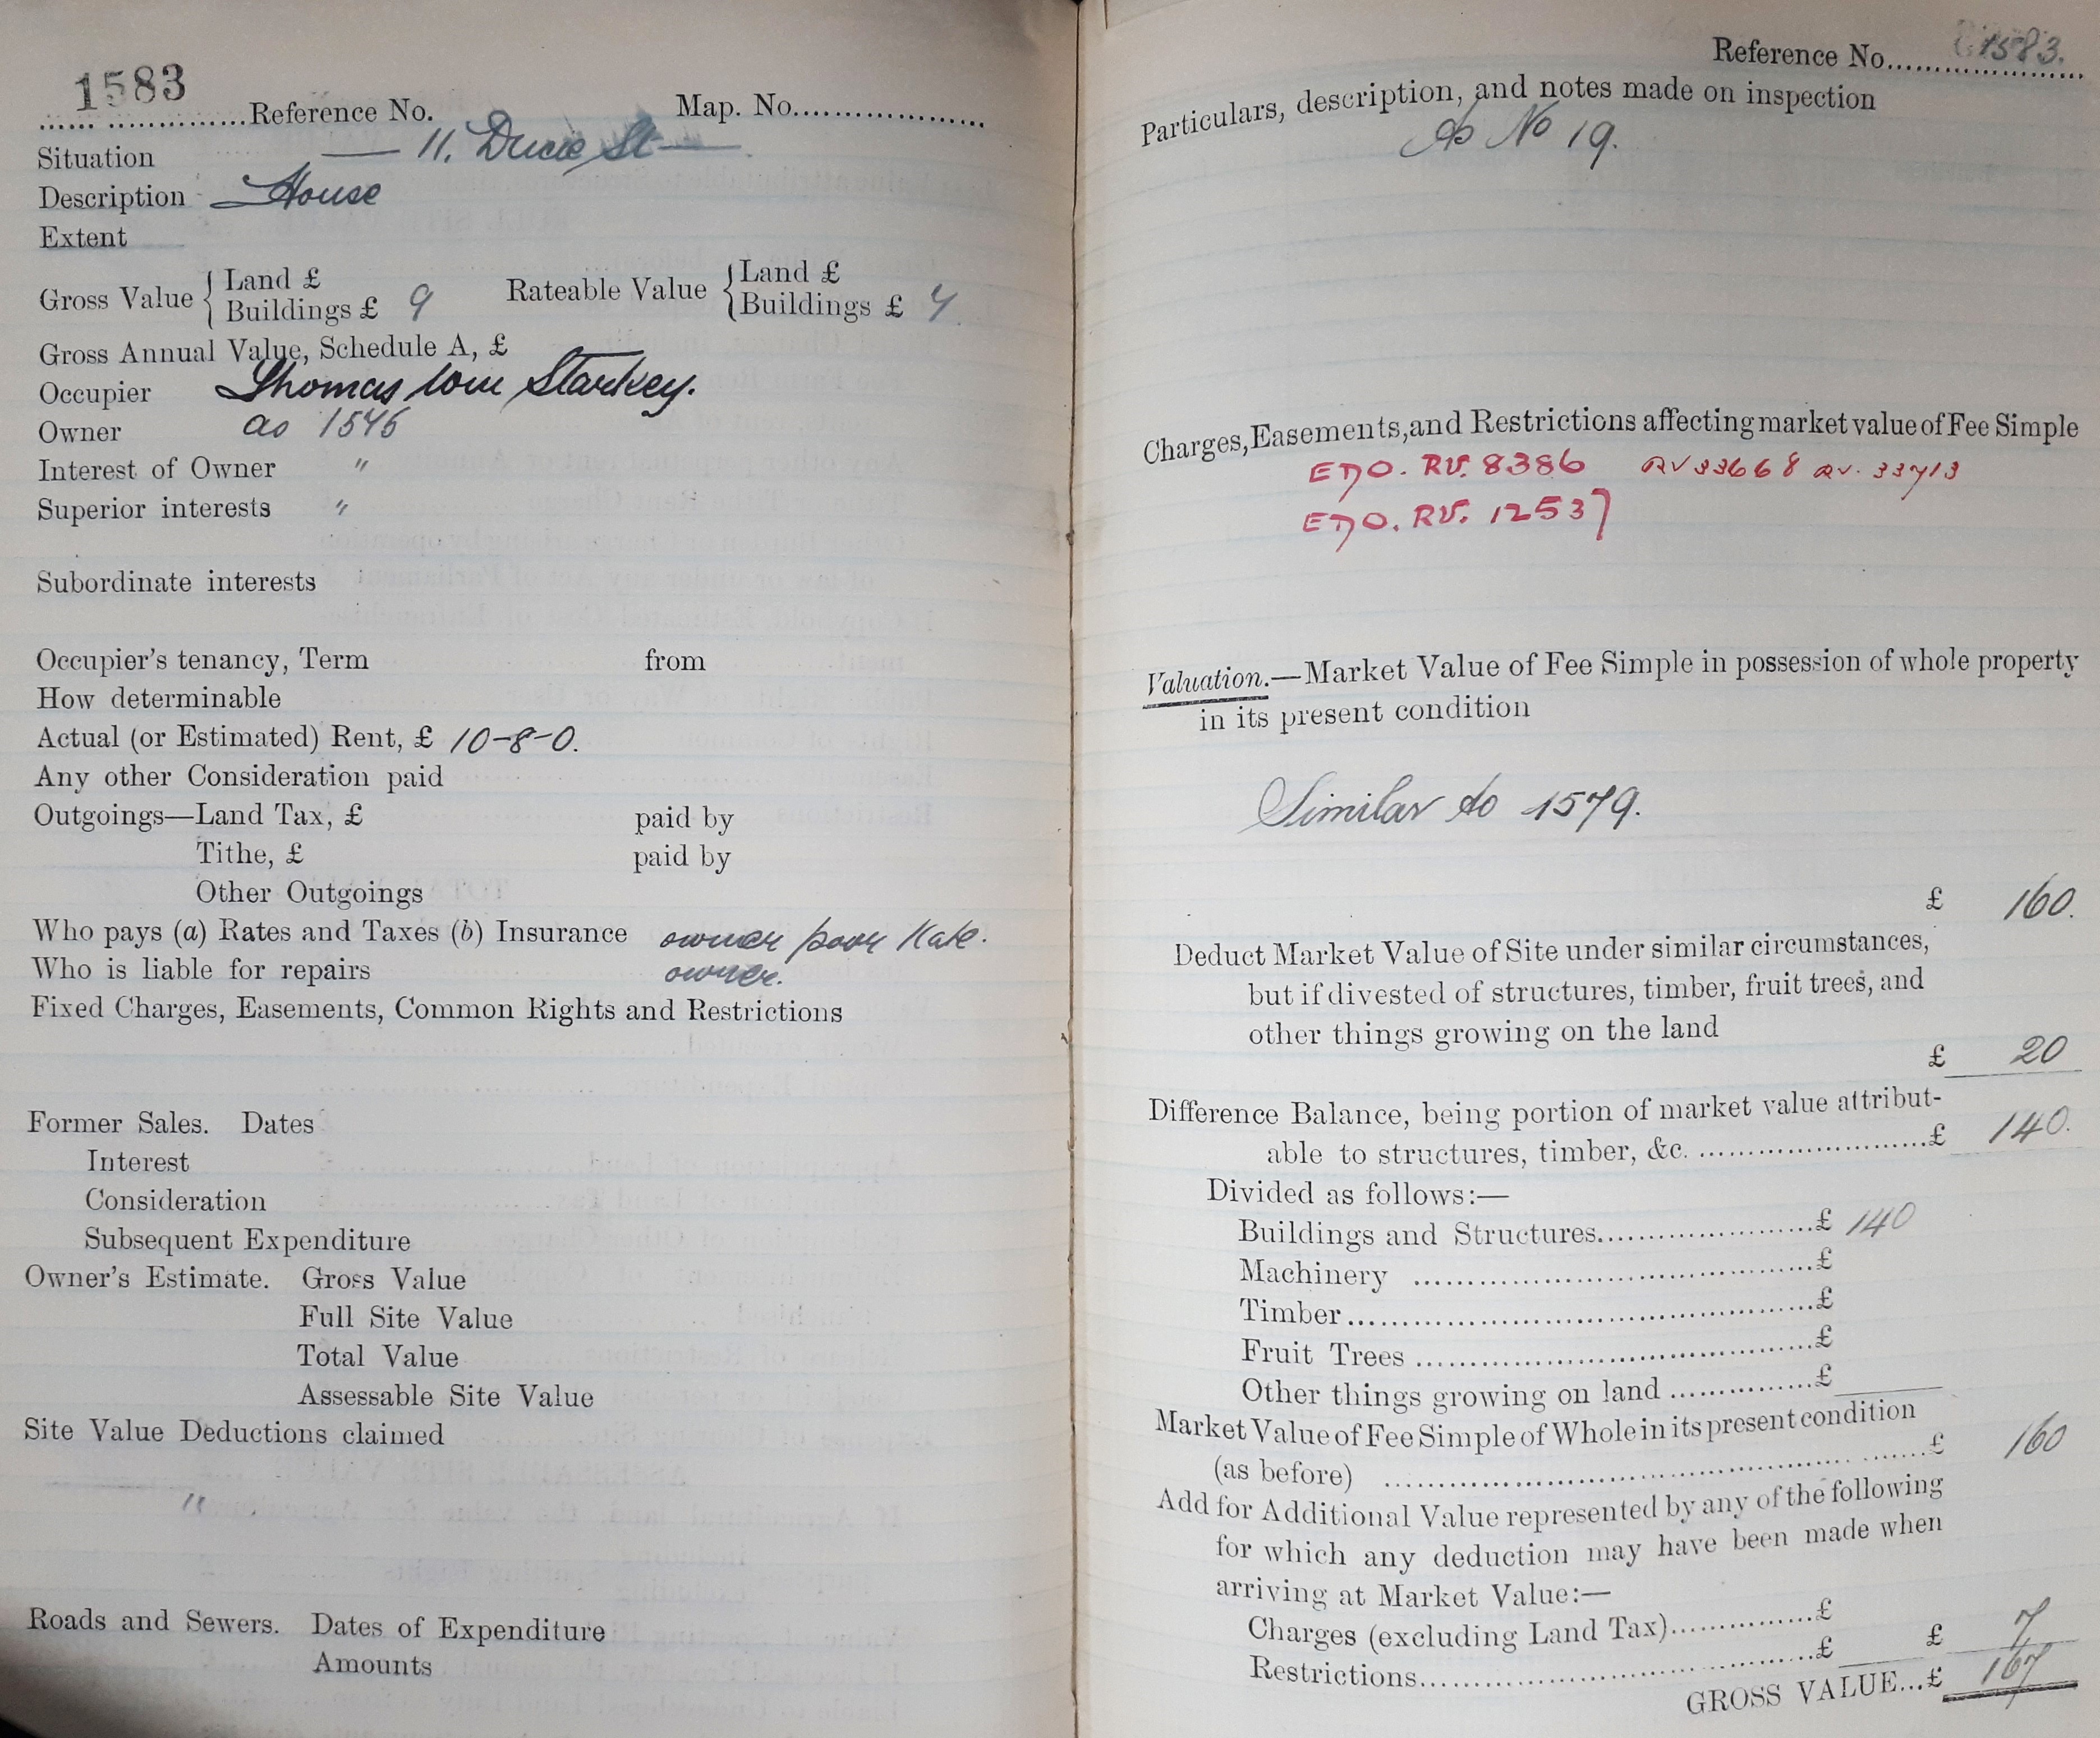 1583
Reference No. Map. No.
Situation — 11. Ducie St —
Description House
Extent
Gross Value { Land £ Rateable Value { Land £
Buildings £ 9 Buildings £ 7
Gross Annual Value, Schedule A, £
Occupier Thomas Tom Starkey.
Owner as 1546
Interest of Owner "
Superior interests "
Subordinate interests
Occupier's tenancy, Term from
How determinable
Actual (or Estimated) Rent, £ 10-8-0.
Any other Consideration paid
Outgoings—Land Tax, £ paid by
Tithe, £ paid by
Other Outgoings
Who pays (a) Rates and Taxes (b) Insurance owner poor Rate.
Who is liable for repairs owner.
Fixed Charges, Easements, Common Rights and Restrictions
Former Sales. Dates
Interest
Consideration
Subsequent Expenditure
Owner's Estimate. Gross Value
Full Site Value
Total Value
Assessable Site Value
Site Value Deductions claimed
"
Roads and Sewers. Dates of Expenditure
Amounts
Reference No. 1583.
Particulars, description, and notes made on inspection
As No 19.
Charges, Easements, and Restrictions affecting market value of Fee Simple
EDO. RV. 8386 RV 33668 RV. 33713
EDO. RV. 12537
Valuation.—Market Value of Fee Simple in possession of whole property
in its present condition
Similar to 1579.
£ 160.
Deduct Market Value of Site under similar circumstances,
but if divested of structures, timber, fruit trees, and
other things growing on the land
£ 20
Difference Balance, being portion of market value attribut-
able to structures, timber, &c. £ 140.
Divided as follows:—
Buildings and Structures £ 140
Machinery £
Timber £
Fruit Trees £
Other things growing on land £
Market Value of Fee Simple of Whole in its present condition
(as before) £ 160
Add for Additional Value represented by any of the following
for which any deduction may have been made when
arriving at Market Value:—
Charges (excluding Land Tax) £
Restrictions £ £ 7
GROSS VALUE...£ 167